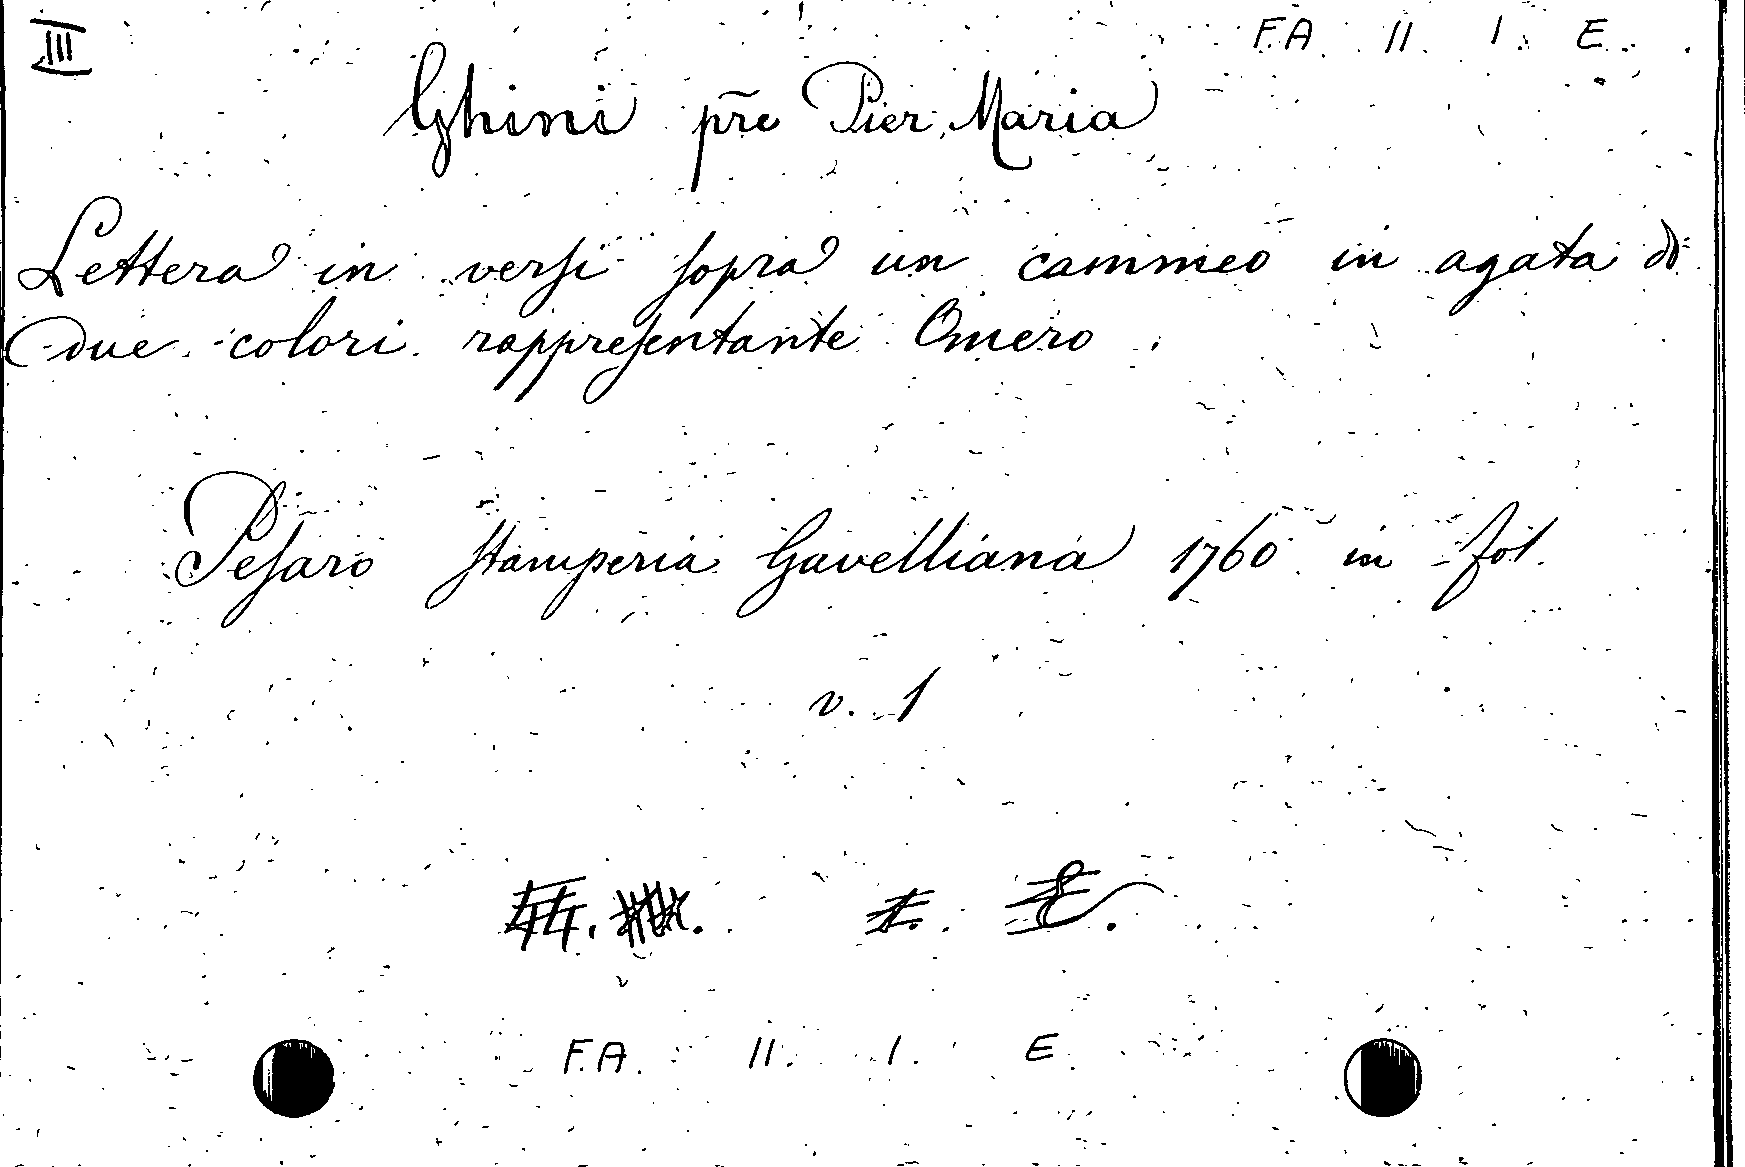 III
F.A. II. I. E.
Ghini pr̃e Pier Maria
Lettera in versi sopra un cammeo in agata di
due colori rappresentante Omero.
Pesaro Stamperia Gavelliana 1760 in fol.
v. 1
F.A. II. I. E.